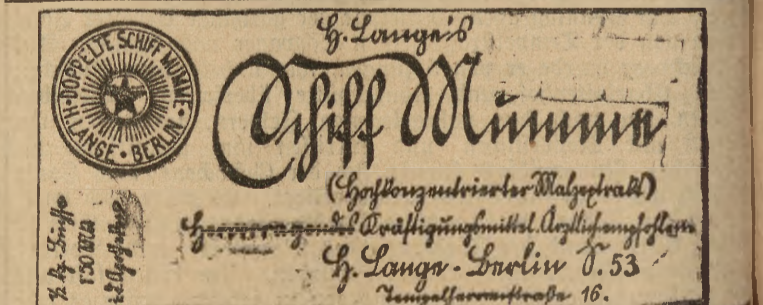 DOPPELTE SCHIFF MUMME
H. LANGE · BERLIN
H. Lange's
Schiff Mumme
(Hochkonzentrierter Malzextrakt)
Hervorragendes Kräftigungsmittel. Ärztlich empfohlen.
H. Lange - Berlin S. 53
Tempelherrenstraße 16.
½ kg-Büchse
1.50 Mk
i. d. Apotheken